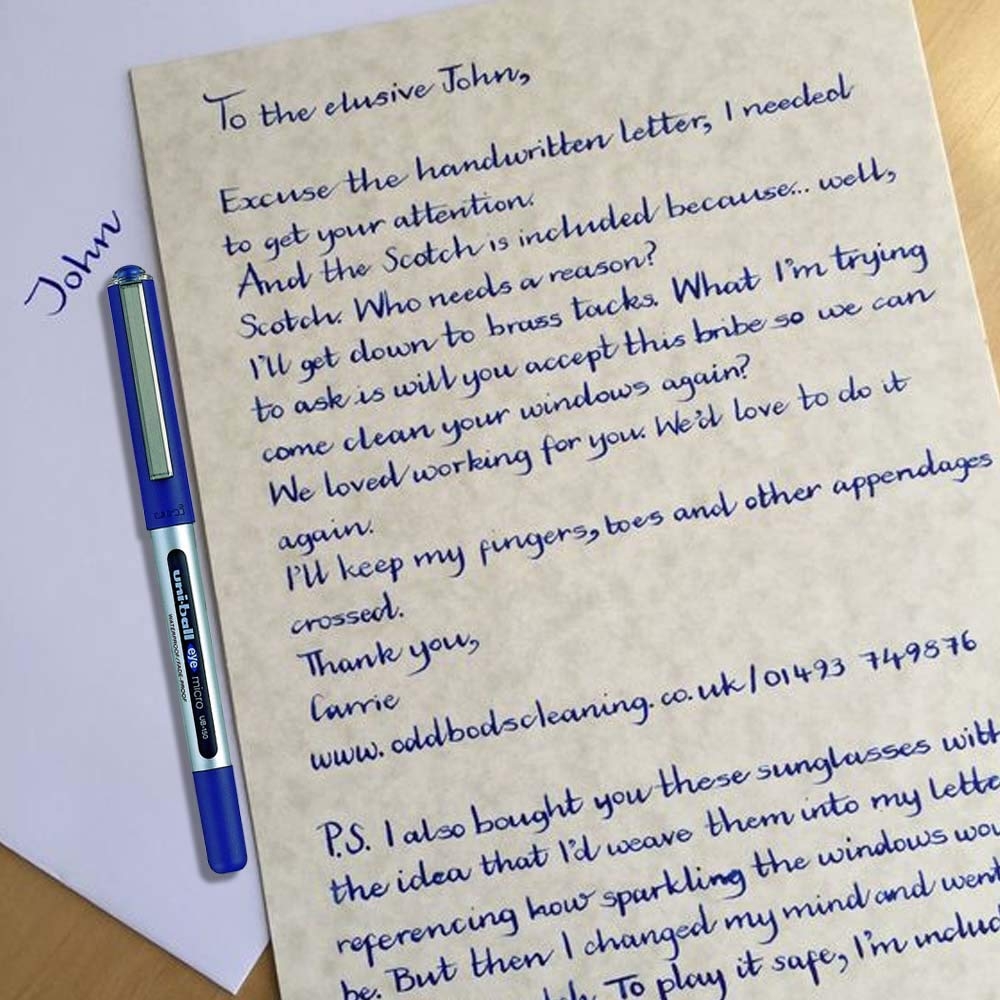 John
uni
uni-ball eye micro UB-150
WATERPROOF/FADE-PROOF
To the elusive John,
Excuse the handwritten letter, I needed
to get your attention.
And the Scotch is included because... well,
Scotch. Who needs a reason?
I'll get down to brass tacks. What I'm trying
to ask is will you accept this bribe so we can
come clean your windows again?
We loved working for you. We'd love to do it
again.
I'll keep my fingers, toes and other appendages
crossed.
Thank you,
Carrie
www.oddbodscleaning.co.uk/01493 749876
P.S. I also bought you these sunglasses with
the idea that I'd weave them into my lette
referencing how sparkling the windows wou
be. But then I changed my mind and went
To play it safe, I'm includ